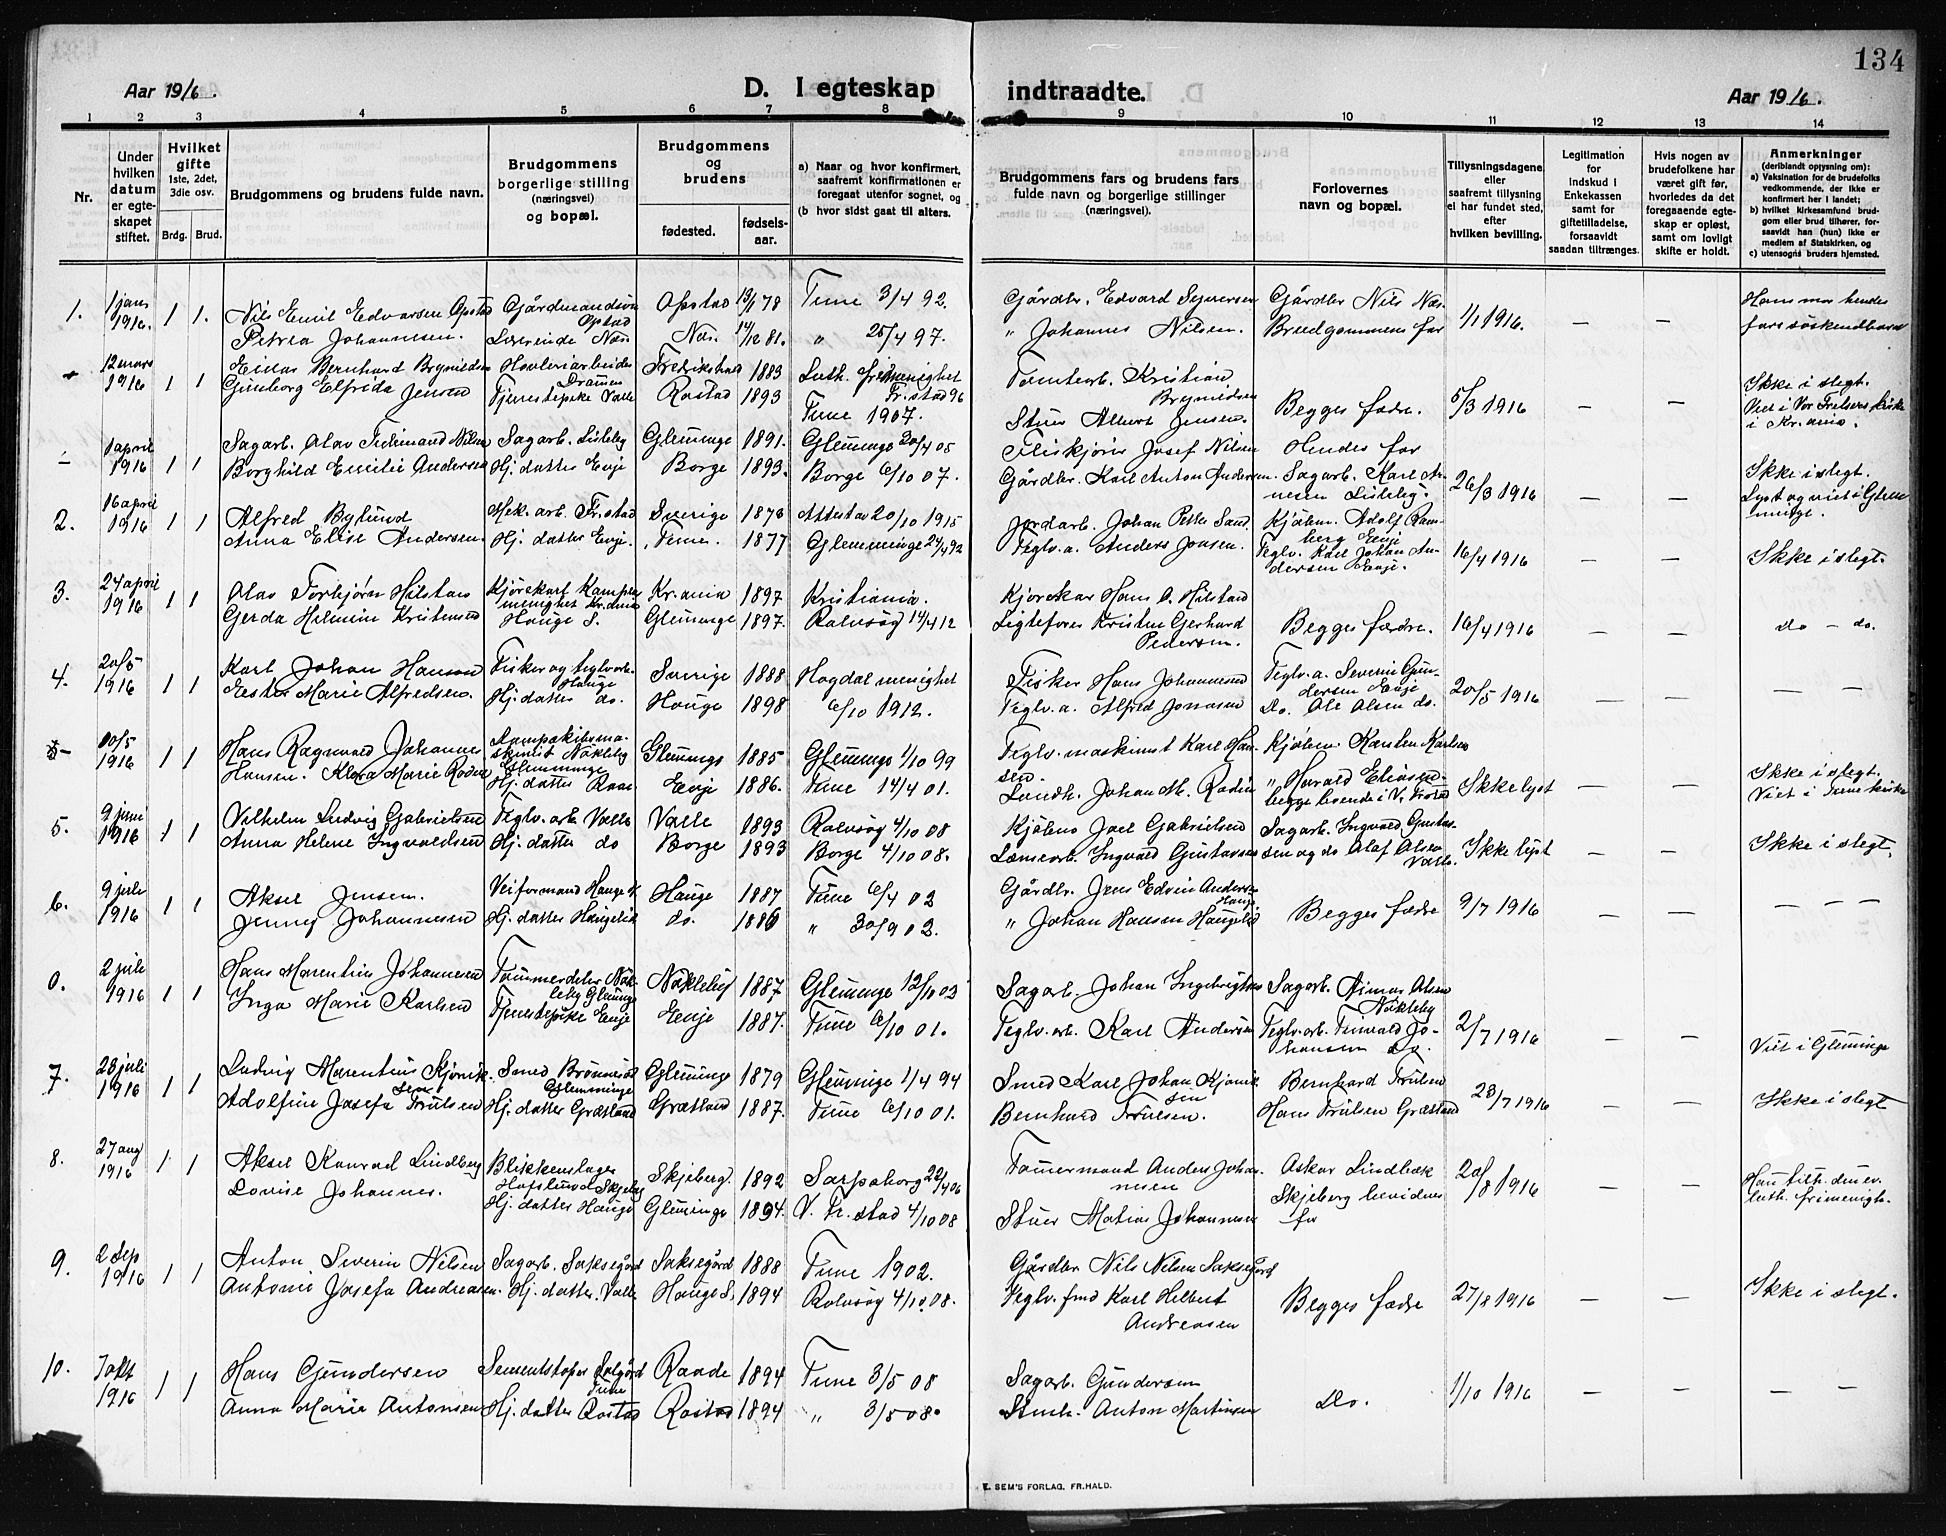 134
Aar 1916.
D. I egteskap indtraadte.
Aar 1916.
1 2 3 4 5 6 7 8 9 10 11 12 13 14
Nr.
Under hvilken datum er egteskapet stiftet.
Hvilket gifte 1ste, 2det, 3die osv.
Brdg. Brud.
Brudgommens og brudens fulde navn.
Brudgommens borgerlige stilling (næringsvei) og bopæl.
Brudgommens og brudens
fødested.
fødselsaar.
a) Naar og hvor konfirmert, saafremt konfirmationen er foregaat utenfor sognet, og
(b hvor sidst gaat til alters.
Brudgommens fars og brudens fars fulde navn og borgerlige stillinger (næringsvei).
Forlovernes navn og bopæl.
Tillysningsdagene eller saafremt tillysning ei har fundet sted, efter hvilken bevilling.
Legitimation for indskud i Enkekassen samt for giftetilladelse, forsaavidt saadan tiltrænges.
Hvis nogen av brudefolkene har været gift før, hvorledes da det foregaaende egteskap er opløst, samt om lovligt skifte er holdt.
Anmerkninger (deriblandt opysning om):
a) Vaksination for de brudefolks vedkommende, der ikke er konfirmert her i landet;
b) hvilket kirkesamfund brudgom eller brud tilhører, forsaavidt han (hun) ikke er medlem af Statskirken, og
c) utensogns bruders hjemsted.
1. 1 jan 1916. 1 1. Nils Emil Edvarsen Opstad Gårdmandsøn Opstad Opstad 19/1 78 Tune 3/4 92. Gårdbr. Edvard Syversen Gårdbr Nils Næs. 1/1 1916. — — Hans mor hendes
Petrea Johannesen. Lærerinde Næs Næs. 14/12 81. " 25/4 97. " Johannes Nilsen. Brudgommens far fars søskendbarn
12 mars 1916 1 1 Einar Bernhard Brynildsen Høvleriarbeider Drammen Fredrikstad 1883 Luth. frimenighet Fr.stad 96 Tomtearb. Kristian Brynildsen Begges fædre. 5/3 1916 — — Ikke i slegt.
Gunborg Elfrida Jensen Tjenestepike Valle Rostad 1893 Tune 1907. Stuer Albert Jensen. Viet i Vor Frelsers kirke i Kr.ania.
— 1 april 1916 1 1 Sagarb. Olav Ferdinand Nilsen Sagarb. Lisleby Glemminge 1891. Glemminge 20/4 05 Fliskjører Josef Nilsen Hendes far
Borghild Emilie Andersen Hj. datter Evje Borge 1893. Borge 6/10 07. Gårdbr. Karl Anton Andersen. Sagarb. Karl Arnesen Lisleby. 26/3 1916 — — Ikke i slegt. Lyst og viet i Glemminge.
2. 16 april 1916 1 1 Alfred Bylund Mek. arb. Fr.stad Sverige 1876 Attest av 20/10 1915 Jordarb. Johan Petter Sand. Kjøbm. Adolf Ramberg Evje
Anna Elise Andersen. Hj. datter Evje. Tune. 1877 Glemminge 24/4 92 Teglv.a. Anders Jonsen. Teglv. Karl Johan Andersen Evje. 16/4 1916 — — Ikke i slegt.
3. 24 april 1916 1 1 Olav Torbjørn Hilstad Kjørekarl Kampens menighet Kr.ania Kr.ania 1897 Kristiania. Kjørekar Hans O. Hilstad
Gerda Helmine Kristensen Hauge S. Glemminge 1897. Rolvsøy 14/4 12 Ligtefører Kristen Gerhard Pedersen. Begges fædre. 16/4 1916 — — do — do.
4. 20/5 1916 1 1 Karl Johan Hansen Fisker og teglverk. Hauge Sverige 1888 Hogdal menighet Fisker Hans Johannesen Teglv.a. Severin Gundersen Evje
Ester Marie Alfredsen. Hj. datter do. Hauge 1898 6/10 1912. Teglv.a. Alfred Jonasen Do. Ole Olsen do. 20/5 1916 — — — —
1916 1 1 Hans Ragnvald Johannes Nakleby Glemminge Glemminge 1885 Glemminge 1/10 99 Teglv.maskinist Karl Hansen. Kjøbm. Karsten Karlsen
Hansen. Klara Marie Rodin Hj. datter Evje 1886. Tune 14/4 01. Landh. Johan M. Rodin " Harald Eliasen. begge boende i V. Fr.stad Ikke lyst — — Ikke i slegt. Viet i Tune kirke
5. 9 juni 1916 1 1 Vilhelm Ludvig Gabrielsen Teglv. arb. Valle Valle 1893 Rolvsøy 4/10 08 Kjøbm Joel Gabrielsen Sagarb. Ingvald Gustavsen
Anna Helene Ingvaldsen Hj. datter do Borge 1893 Borge 4/10 08. Lænsearb. Ingvald Gustavsen og do Olaf Olsen Valle. Ikke lyst — — Ikke i slegt.
6. 9 juli 1916 1 1 Aksel Jensen. Veiformand Hauge N. Hauge 1887 Tune 6/4 02 Gårdbr. Jens Edvin Andersen Hauge.
Jenny Johannesen Hj. datter Haugelid do. 1886 " 30/9 02. " Johan Hansen Haugelid Begges fædre 9/7 1916 — — — — —
0. 2 juli 1916 1 1 Hans Marentius Johannesen Tømmerdeler Nakleby Glemminge Nakleby 1887 Glemminge 12/10 03 Sagarb. Johan Ingebrigtsen Sagarb. Olsen Nakleby
Inga Marie Karlsen Tjenestepike Evje Evje 1887. Tune 6/10 01. Teglv.arb. Karl Andersen Teglv.arb. Johansen Do. 2/7 1916 — — Viet i Glemminge
7. 23 juli 1916 1 1 Ludvig Marentius Kjøniksen Smed Glemminge Glemminge 1879 Glemminge 1/4 94 Smed Karl Johan Kjøniksen Bernhard Trulsen
Adolfine Josefa Trulsen Hj. datter Græsland Græsland 1887. Tune 6/10 01. Bernhard Trulsen. Hans Trulsen Græsland 23/7 1916 — — Ikke i slegt
8. 27 aug 1916 1. 1 Aksel Konrad Lindberg Blikkenslager Hafslund Skjeberg Skjeberg. 1892 Sarpsborg 22/4 06 Tømmermand Anders Johannesen Oskar Lindbæk
Lovise Johannes. Hj. datter Hauge Glemminge 1894. V. Fr.stad 4/10 08 Stuer Matias Johannesen Skjeberg far 20/8 1916 — — Han tilh. den ev. luth. frimenigh.
9. 2 Sep 1916 1 1 Anton Severin Nilsen Sagarb. Saksegård Saksegård 1888 Tune 1902. Gårdbr Nils Nilsen Saksegård
Antonie Josefa Andreasen. Hj. datter Valle Hauge S. 1894 Rolvsøy 4/10 08. Teglv.fmd Karl Helbert Andreasen Begges fædre 27/8 1916 — — Ikke i slegt.
10. 7 okt 1916 1 1 Hans Gundersen Sementstøper Solgård Tune Raade 1894 Tune 3/5 08 Sagarb. Gundersen
Anna Marie Antonsen Hj. datter Rostad Rostad 1894 " 3/5 08. Anton Martinsen Do. 1/10 1916 — — — —
E. SEM'S FORLAG, FR.HALD.